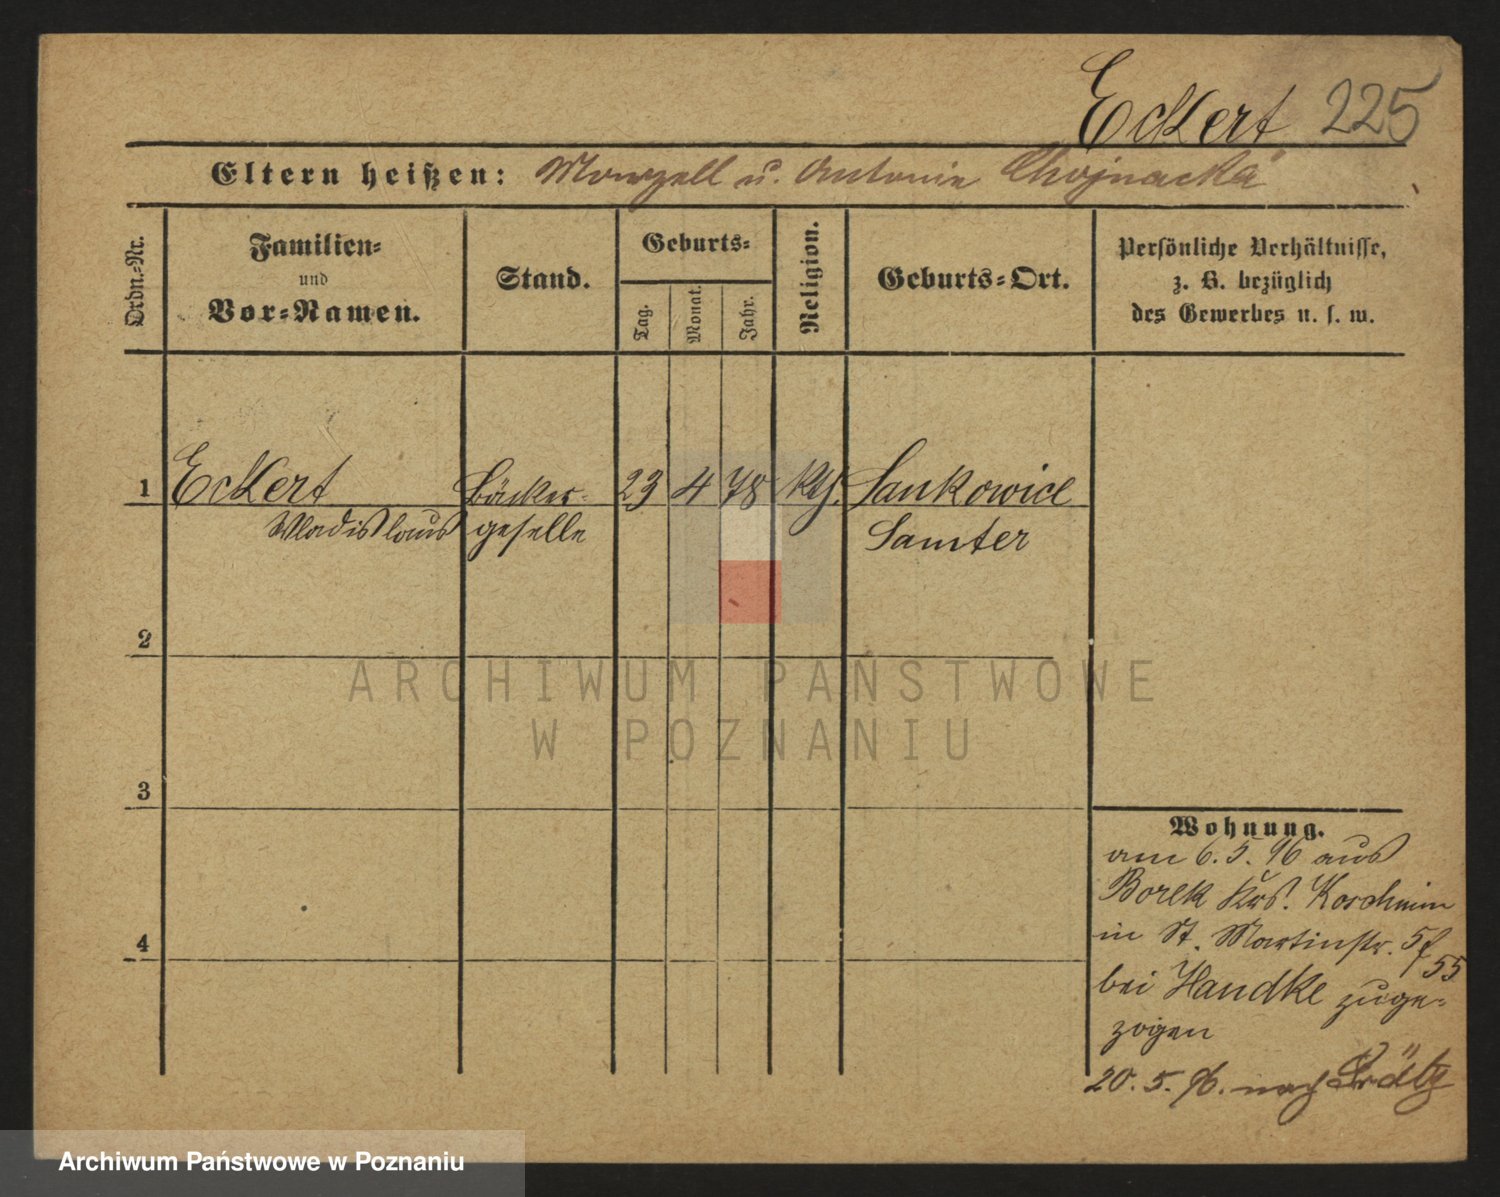 Eckert 225
Eltern heißen: Marzell u. Antonie Chojnacka
Ordn.-Nr.
Familien-
und
Vor-Namen.
Stand.
Geburts-
Tag.
Monat.
Jahr.
Religion.
Geburts-Ort.
Persönliche Verhältnisse,
z. B. bezüglich
des Gewerbes u. s. w.
1 Eckert Bäcker- 23 4 78 kth. Sankowice
Wladislaus geselle Samter
2
3
4
Wohnung.
am 6.5.96 aus
Borek Krs. Koschmin
in St. Martinstr. 54/55
bei Handke zuge-
zogen
20.5.96. nach Grätz
ARCHIWUM PAŃSTWOWE
W POZNANIU
Archiwum Państwowe w Poznaniu